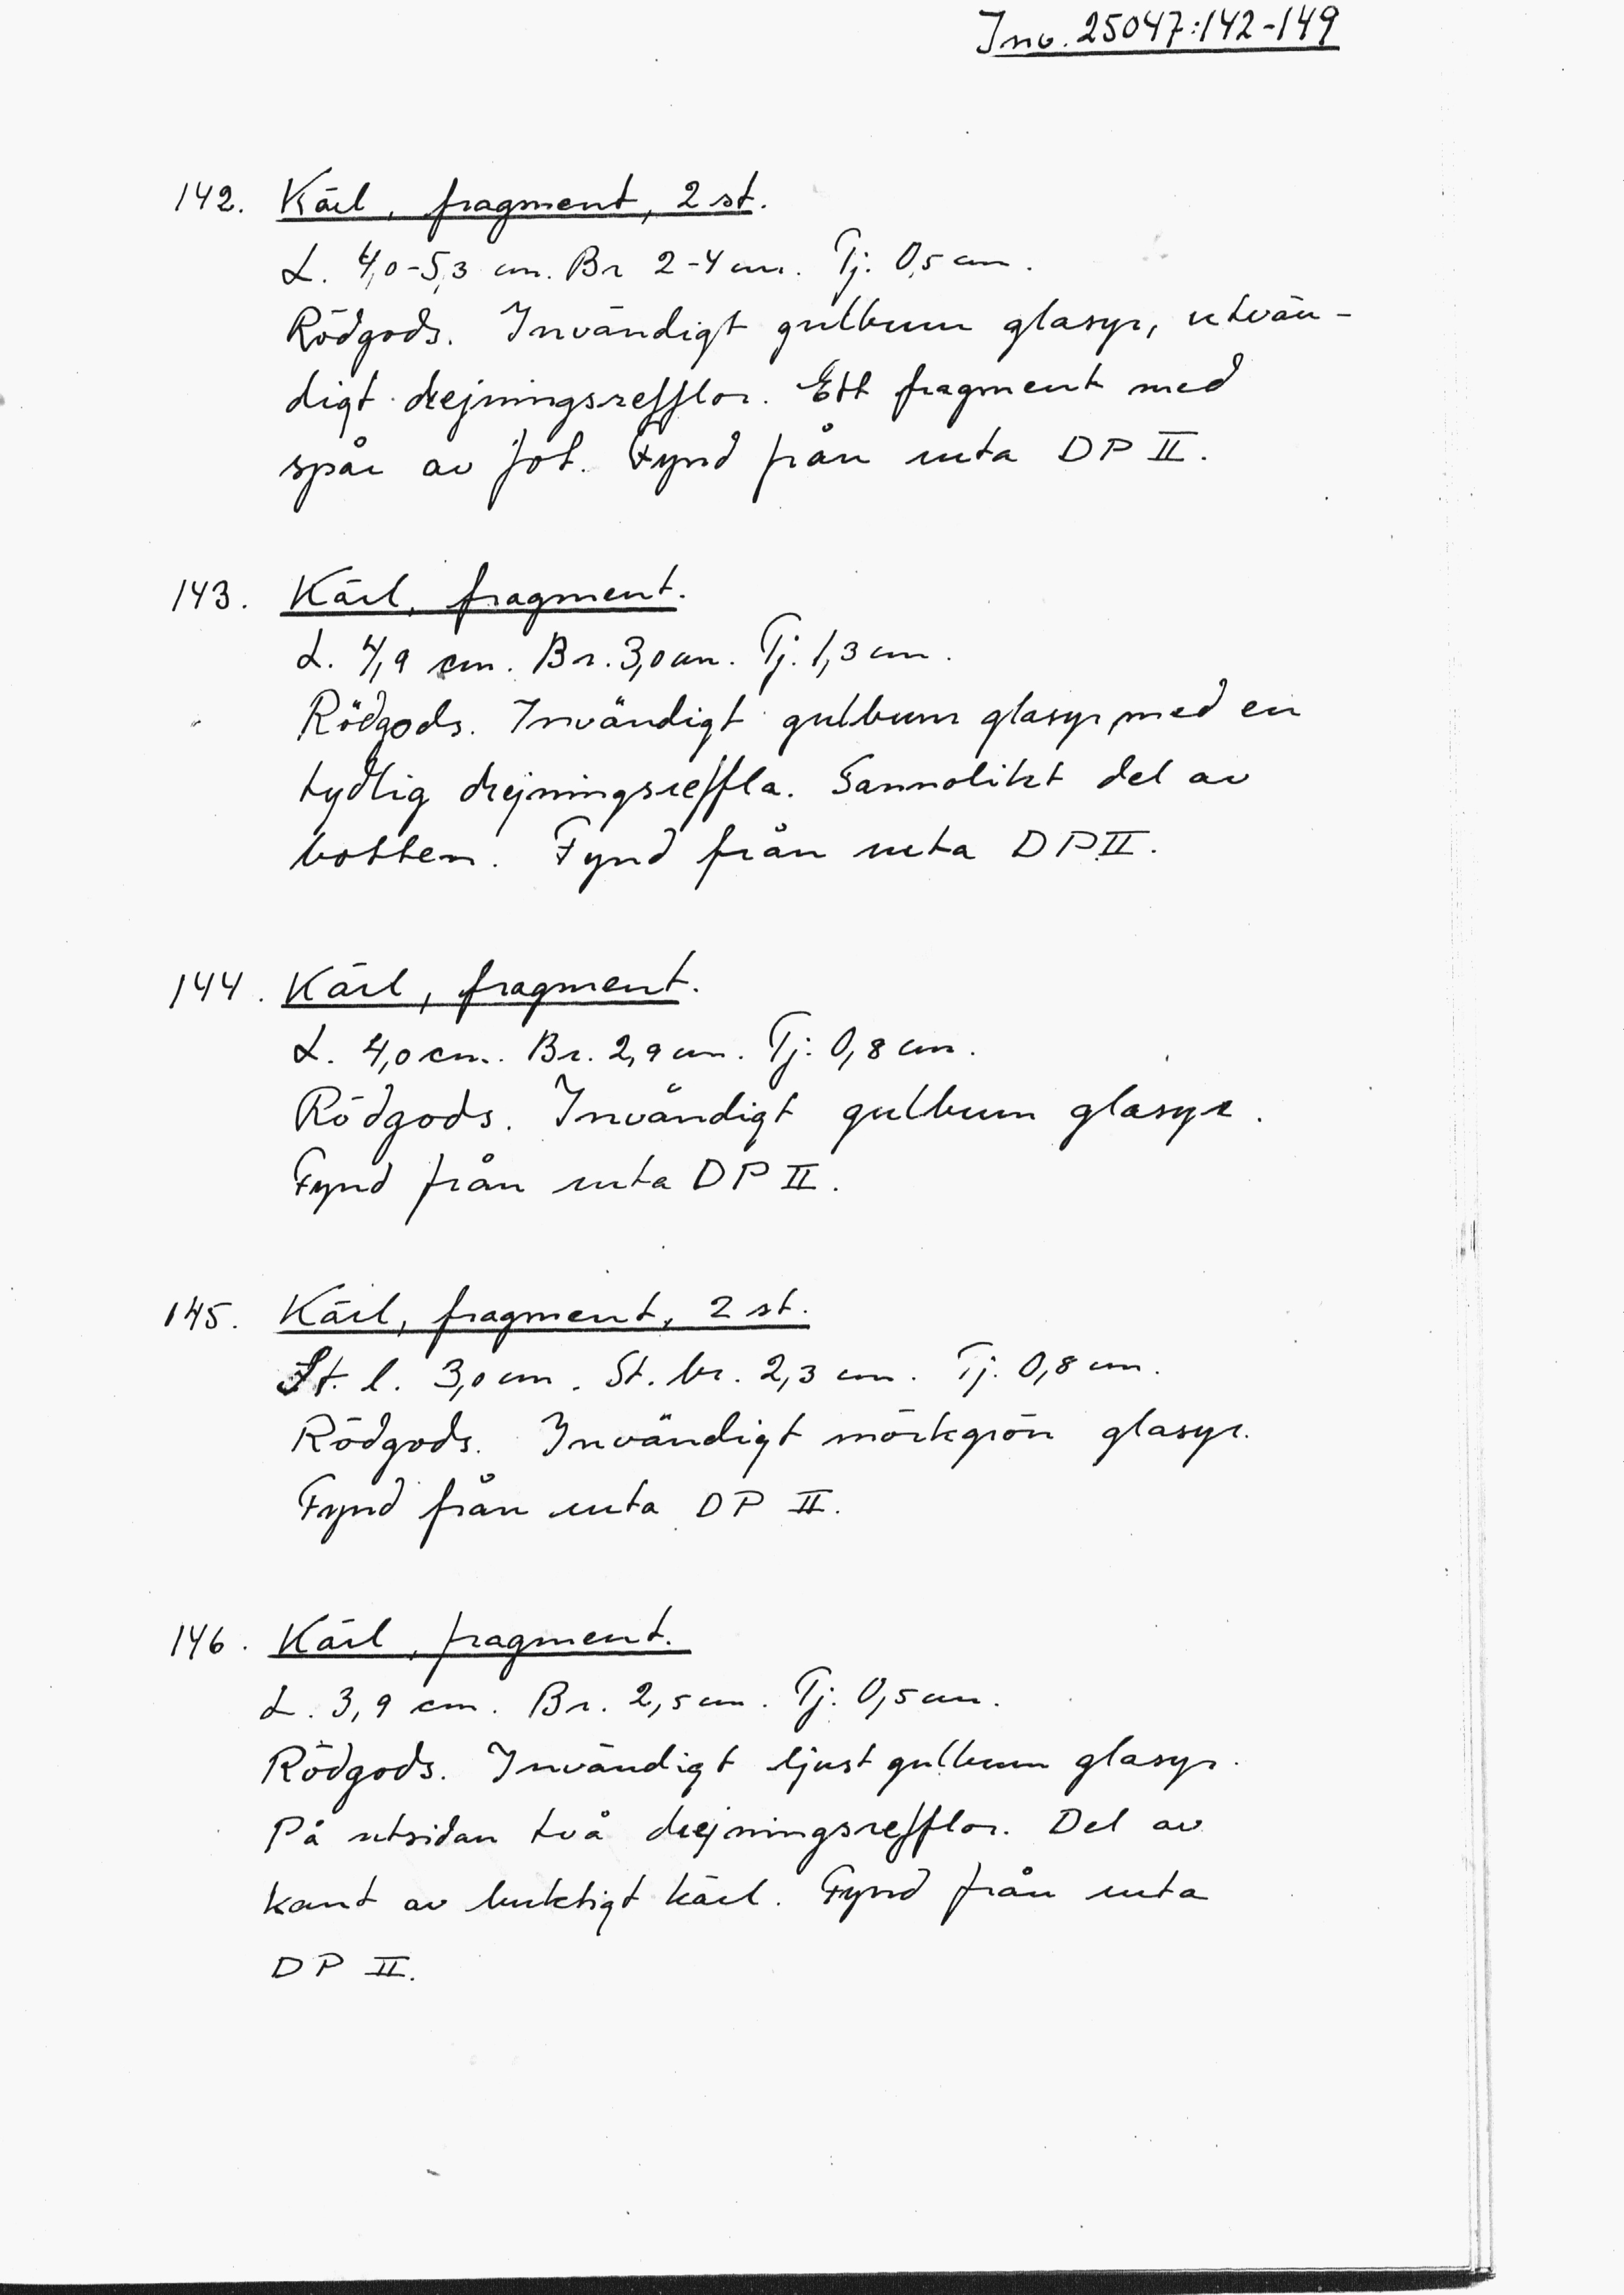 Inv. 25047:142-149
142. Kärl, fragment, 2 st.
L. 4,0-5,3 cm. Br 2-4 cm. Tj. 0,5 cm.
Rödgods. Invändigt gulbrun glasyr, utvän-
digt drejningsrefflor. Ett fragment med
spår av fot. Fynd från ruta DP II.
143. Kärl, fragment.
L. 4,9 cm. Br. 3,0 cm. Tj. 1,3 cm.
Rödgods. Invändigt gulbrun glasyr, med en
tydlig drejningsreffla. Sannolikt del av
botten. Fynd från ruta DP II.
144. Kärl, fragment.
L. 4,0 cm. Br. 2,9 cm. Tj. 0,8 cm.
Rödgods. Invändigt gulbrun glasyr.
Fynd från ruta DP II.
145. Kärl, fragment, 2 st.
St. l. 3,0 cm. St. br. 2,3 cm. Tj. 0,8 cm.
Rödgods. Invändigt mörkgrön glasyr.
Fynd från ruta DP II.
146. Kärl, fragment.
L. 3,9 cm. Br. 2,5 cm. Tj. 0,5 cm.
Rödgods. Invändigt ljust gulbrun glasyr.
På utsidan två drejningsrefflor. Del av
kant av buktigt kärl. Fynd från ruta
DP II.